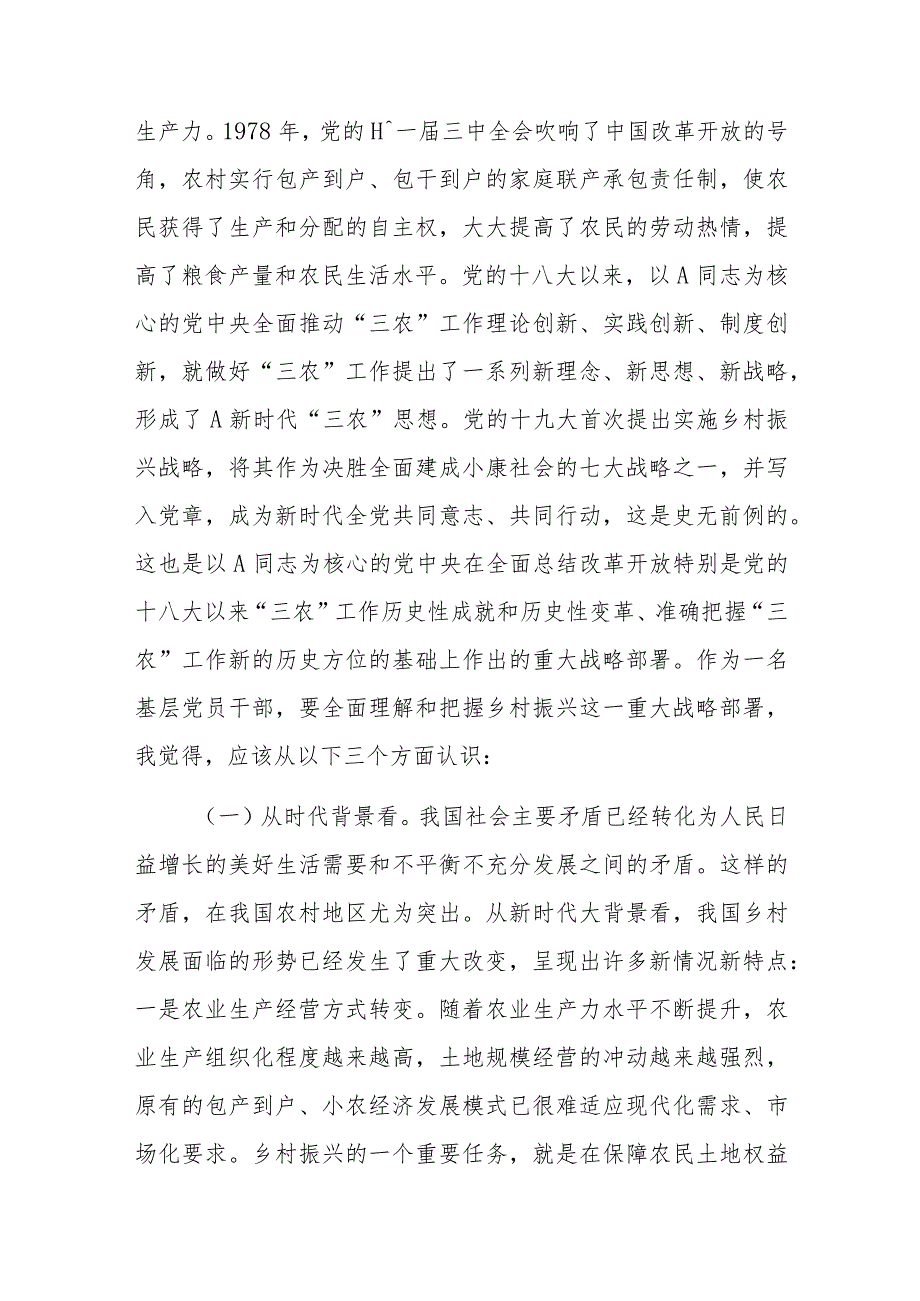 生产力。1978 年，党的 H^一届三中全会吹响了中国改革开放的号
角，农村实行包产到户、包干到户的家庭联产承包责任制，使农
民获得了生产和分配的自主权，大大提高了农民的劳动热情，提
高了粮食产量和农民生活水平。党的十八大以来，以 A 同志为核
心的党中央全面推动“三农”工作理论创新、实践创新、制度创
新，就做好“三农”工作提出了一系列新理念、新思想、新战略，
形成了 A 新时代“三农”思想。党的十九大首次提出实施乡村振
兴战略，将其作为决胜全面建成小康社会的七大战略之一，并写
入党章，成为新时代全党共同意志、共同行动，这是史无前例的。
这也是以 A 同志为核心的党中央在全面总结改革开放特别是党的
十八大以来“三农”工作历史性成就和历史性变革、准确把握“三
农”工作新的历史方位的基础上作出的重大战略部署。作为一名
基层党员干部，要全面理解和把握乡村振兴这一重大战略部署，
我觉得，应该从以下三个方面认识：
（一）从时代背景看。我国社会主要矛盾已经转化为人民日
益增长的美好生活需要和不平衡不充分发展之间的矛盾。这样的
矛盾，在我国农村地区尤为突出。从新时代大背景看，我国乡村
发展面临的形势已经发生了重大改变，呈现出许多新情况新特点：
一是农业生产经营方式转变。随着农业生产力水平不断提升，农
业生产组织化程度越来越高，土地规模经营的冲动越来越强烈，
原有的包产到户、小农经济发展模式已很难适应现代化需求、市
场化要求。乡村振兴的一个重要任务，就是在保障农民土地权益